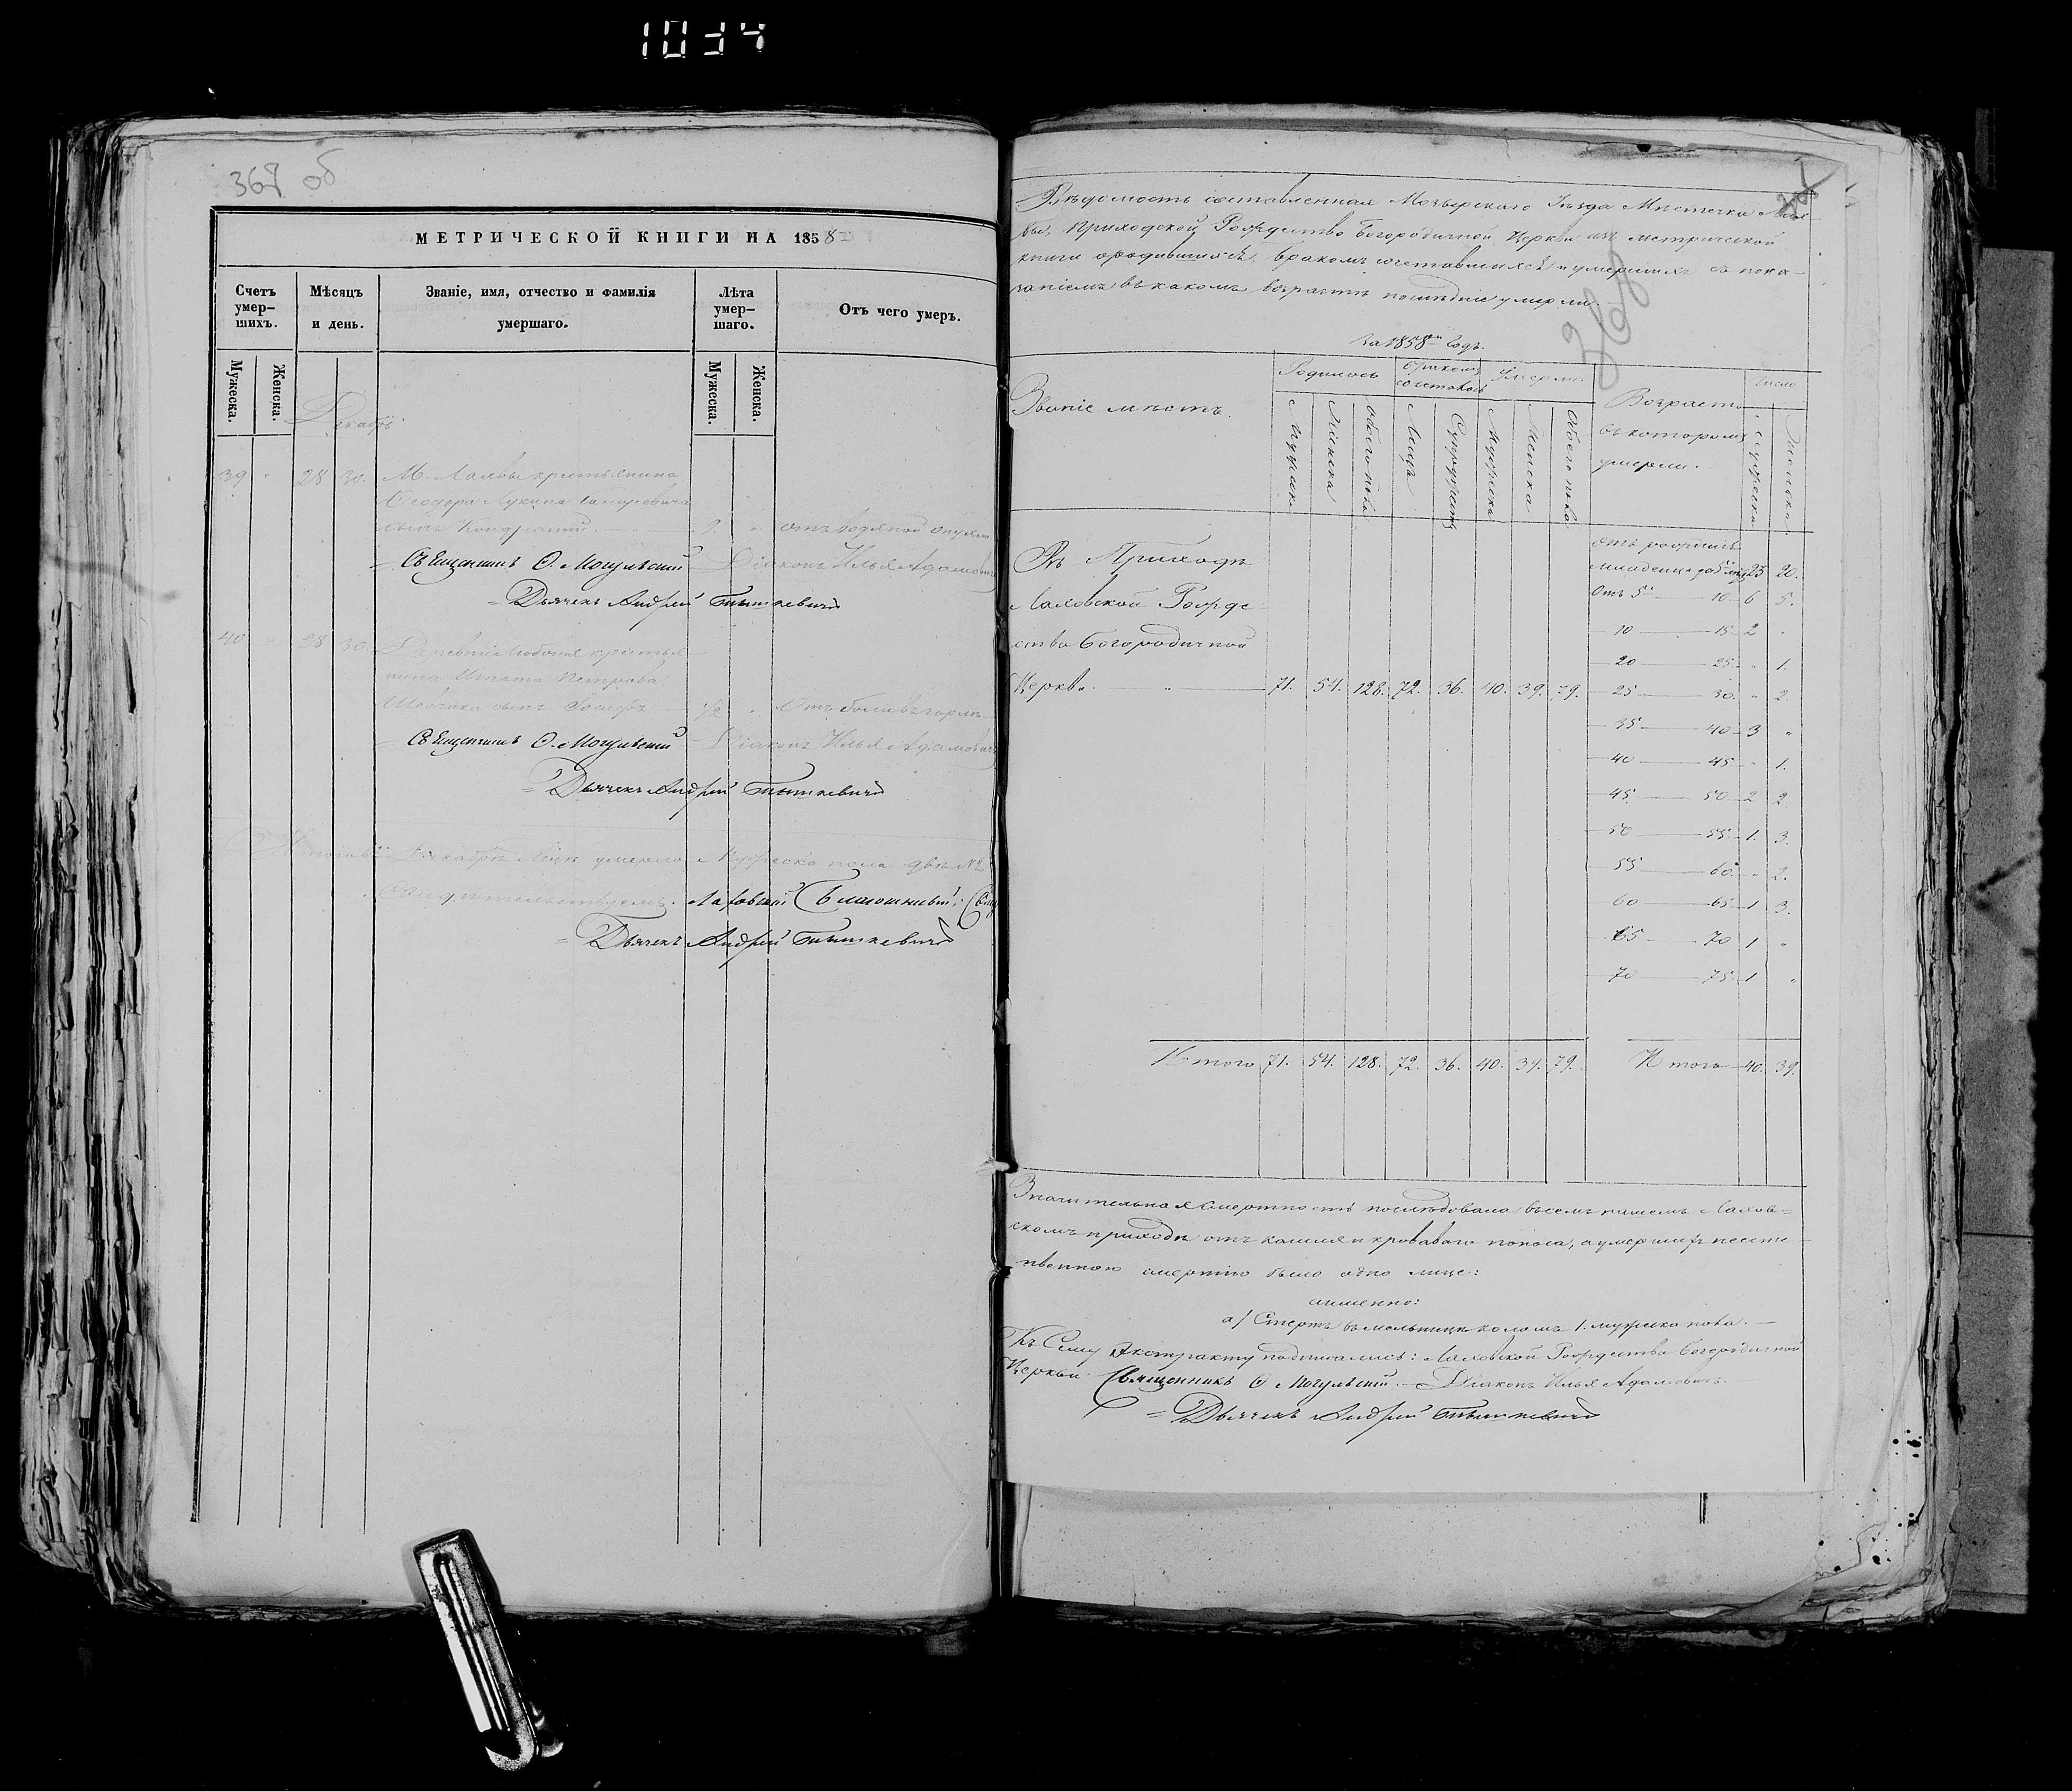 1034
367 об
МЕТРИЧЕСКОЙ КНИГИ НА 1858
Счетъ умер-шихъ. Мѣсяцъ и день. Званіе, имя, отчество и фамилія умершаго. Лѣта умер-шаго. Отъ чего умеръ.
Мужеска. Женска. Мужеска. Женска.
Декабрь.
39 " 28 30. М. Лахвы крестьянина
Ѳеодора Лукина
сынъ Кондратій. отъ водяной опухли
Священникъ Ѳ. Могульскій Діаконъ Илья Адамовичъ
Дьячекъ Андрей Тышкевичъ
40 " 28 30. Деревни Любоня крестья-
нина Игната Петрова
Шевчика сынъ Іосифъ ½ " Отъ боли въ горлѣ
Священникъ Ѳ. Могульскій Діаконъ Илья Адамовичъ
Дьячекъ Андрей Тышкевичъ
Итого въ Декабрѣ Мцѣ умерло Мужеска пола два №2
Свидѣтельствуемъ. Лаховскій Благочинный
Дьячекъ Андрей Тышкевичъ
368
Вѣдомость составленная Мозырскаго Уѣзда Мѣстечка Лах-
вы, Приходской Рождество Богородичной Церкви изъ метрической
книги о родившихся, бракомъ сочетавшихся и умершихъ съ пока-
заніемъ въ какомъ возрастѣ послѣдніе умерли.
За 1858 Годъ.
Званіе мѣстъ. Родилось Бракомъ сочеталось Умерло. Возрастъ въ которомъ умерли. Число
Мужеска Женска Обоего пола Лицъ Супружествъ Мужеска Женска Обоего пола Мужеска Женска
Въ Приходѣ
Лаховской Рожде-
ство Богородичной
Церкви. " 71. 54. 128. 72. 36. 40. 39. 79.
отъ рожденія
младенца до 5 лѣтъ 23 20.
Отъ 5 10 6 5.
10 15 2 "
20 25 " 1.
25 30 " 2.
35 40 3 "
40 45 " 1.
45 50 2 2
50 55 1. 3.
55 60 " 2.
60 65 1 3.
65 70 1 "
70 75 1 "
Итого 71. 54. 128. 72. 36. 40. 39. 79. Итого 40. 39.
Значительная смертность послѣдовала въ семъ нашемъ Лахов-
скомъ приходѣ отъ кашля и кроваваго поноса, а умершихъ неесте-
ственною смертію было одно лице:
аименно:
а) Стертъ въ мельницѣ коломъ 1. мужеска пола.
Къ Сему Экстракту подписались: Лаховской Рождество-Богородичной
Церкви Священникъ Ѳ Могульскій. Діаконъ Илья Адамовичъ.
Дьячекъ Андрей Тышкевичъ